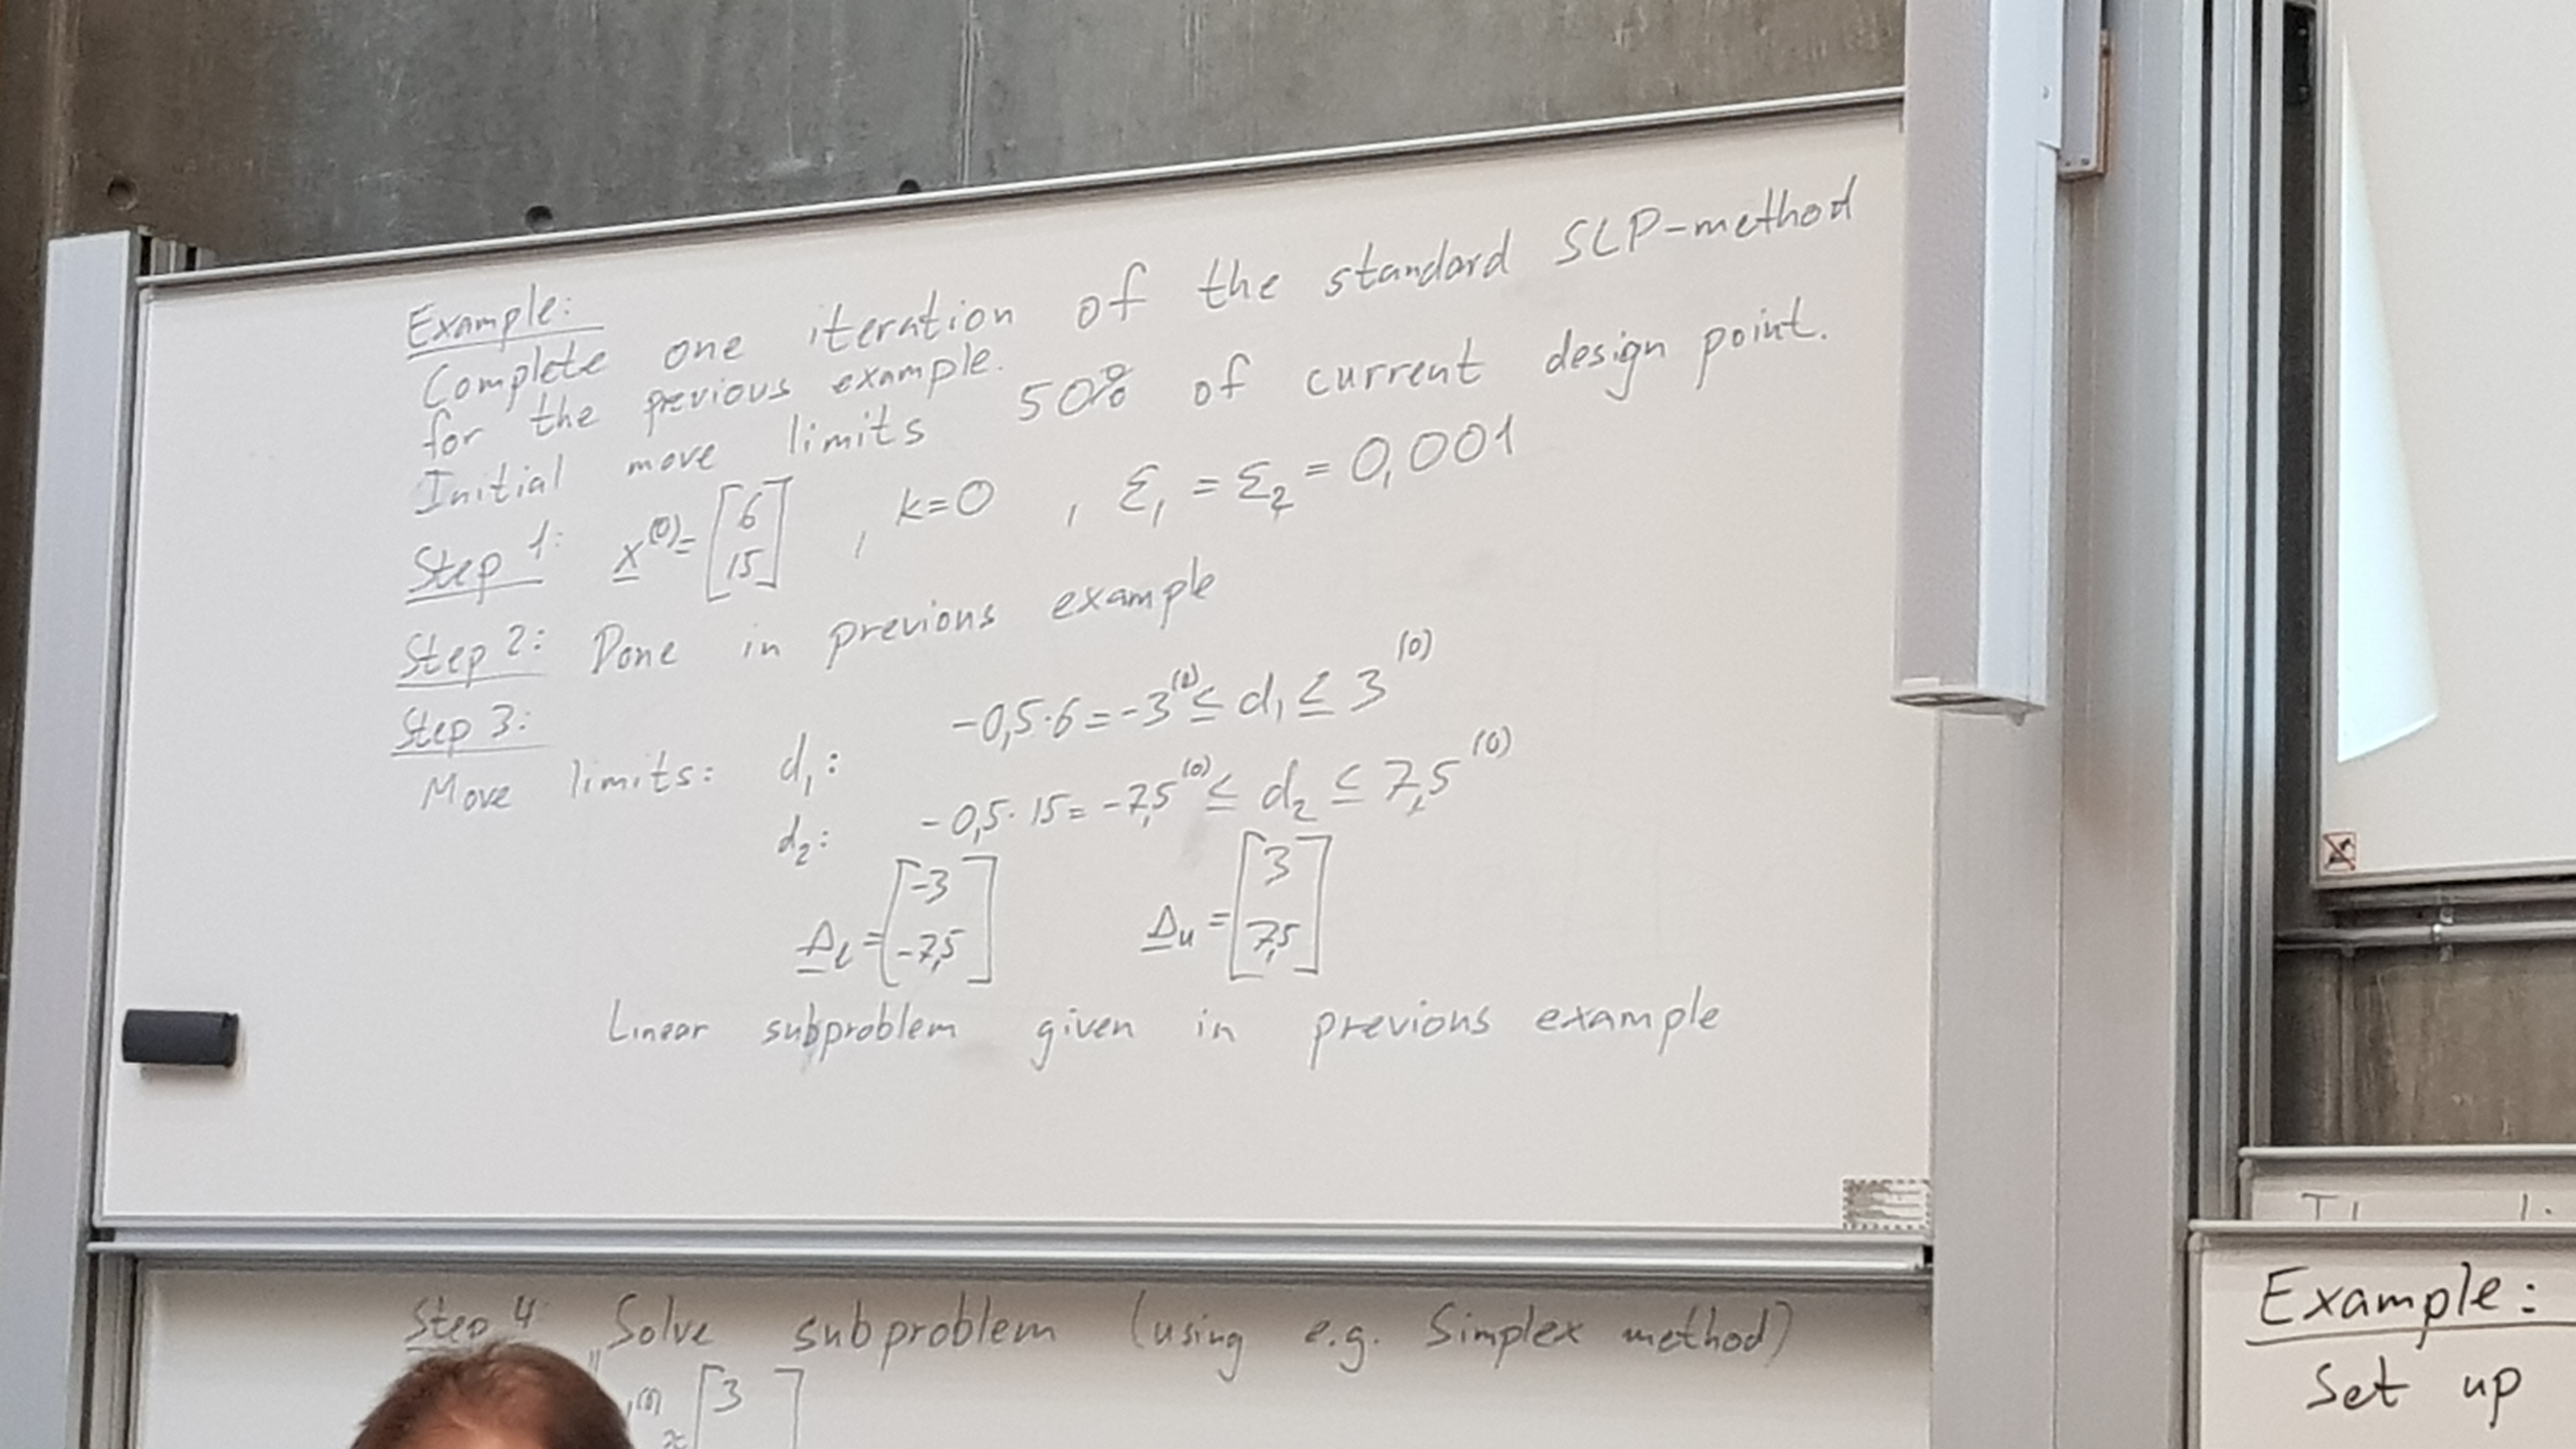 Example:
Complete one iteration of the standard SLP-method
for the previous example.
Initial move limits 50% of current design point.
Step 1: x^(0) = [6 15] , k=0 , ε₁ = ε₂ = 0,001
Step 2: Done in previous example
Step 3:
Move limits: d₁: -0,5·6 = -3^(0) ≤ d₁ ≤ 3^(0)
d₂: -0,5·15 = -7,5^(0) ≤ d₂ ≤ 7,5^(0)
Δ_l = [-3 -7,5] Δ_u = [3 7,5]
Linear subproblem given in previous example
Step 4: Solve subproblem (using e.g. Simplex method)
(0) ≈ [3
Example:
Set up